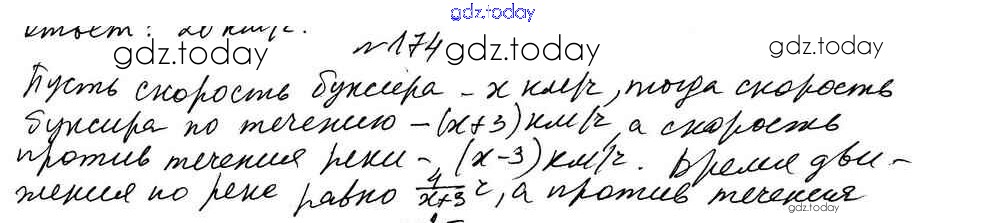 gdz.today
Ответ: 20 км/ч.
gdz.today №174 gdz.today gdz.today
Пусть скорость буксира – x км/ч, тогда скорость
буксира по течению – (x+3) км/ч, а скорость
против течения реки – (x-3) км/ч. Время дви-
жения по реке равно 4/(x+3) ч, а против течения
gdz.today gdz.today gdz.today